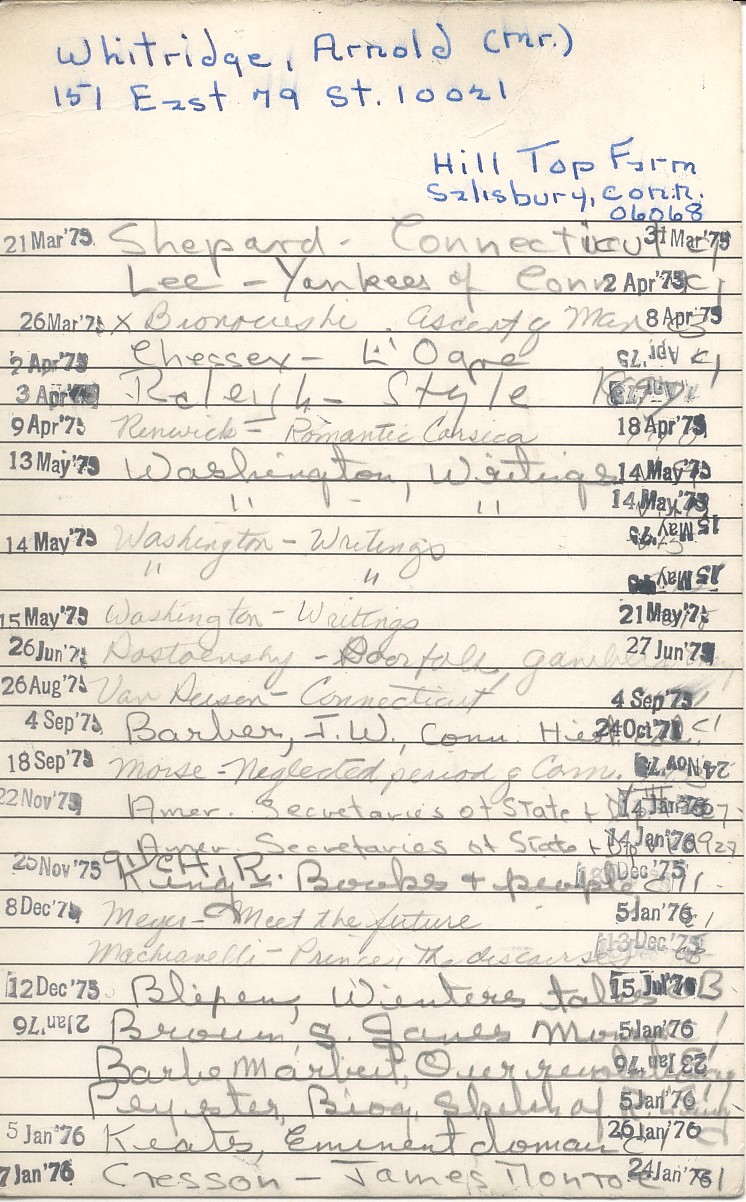 Whitridge, Arnold (Mr.)
151 East 79 St. 10021
Hill Top Farm
Salisbury, Conn.
06068
21 Mar'75 Shepard - Connecticut 31 Mar'75
Lee - Yankees of Conn 2 Apr'75
26 Mar'75 X Bronowski . Ascent of Man 8 Apr'75
2 Apr'75 Chessex - L'Ogre Apr.'75
3 Apr Raleigh - Style
9 Apr'75 Renwick - Romantic Corsica 18 Apr'75
13 May'75 Washington, Writings 14 May'75
" - " 14 May'75
14 May'75 Washington - Writings 15 May'75
" " 15 May
15 May'75 Washington - Writings 21 May'75
26 Jun'75 Dostoevsky - Poor folk, gambler 27 Jun'75
26 Aug'75 Van Dusen - Connecticut 4 Sep'75
4 Sep'75 Barber, J.W. Conn. Hist. 24 Oct'75
18 Sep'75 Morse - Neglected period of Conn. 24 Nov'75
22 Nov'75 Amer. Secretaries of State + 14 Jan'76
Amer. Secretaries of State + 14 Jan'76
25 Nov'75 King - Books + people Dec'75
8 Dec'75 Meyer - Meet the future 5 Jan'76
Machiavelli - Prince, The discourses 13 Dec'75
12 Dec'75 Winters tales 15 Jul'76
2 Jan'76 Brown, S. James 5 Jan'76
Barbe Marbois, Our 23 Jan'76
Peyster, Biog. Sketch of 5 Jan'76
5 Jan'76 Keats, Eminent domain 26 Jan'76
7 Jan'76 Cresson - James Monroe 24 Jan'76